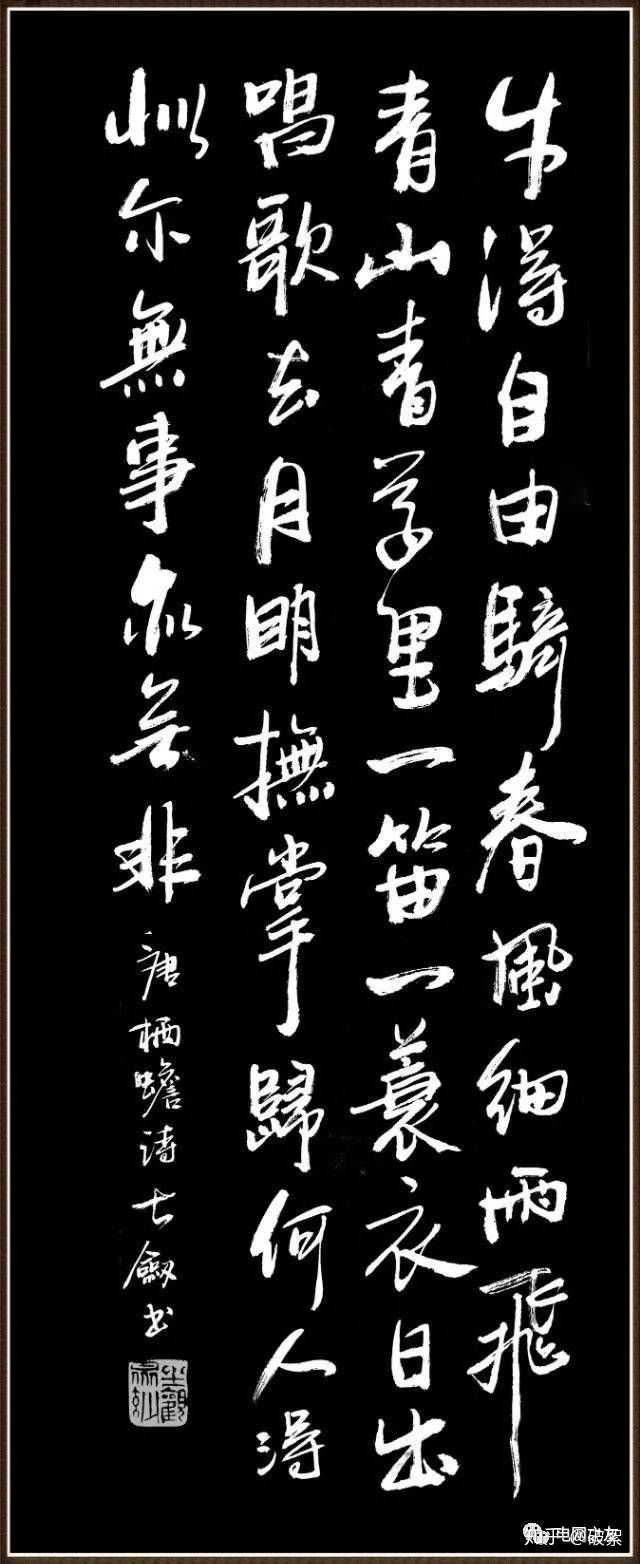 牛得自由騎春風細雨飛
青山青草里一笛一蓑衣日出
唱歌去月明撫掌歸何人得
似尔無事亦无非
唐栖蟾诗七劍书
知乎 @破絮